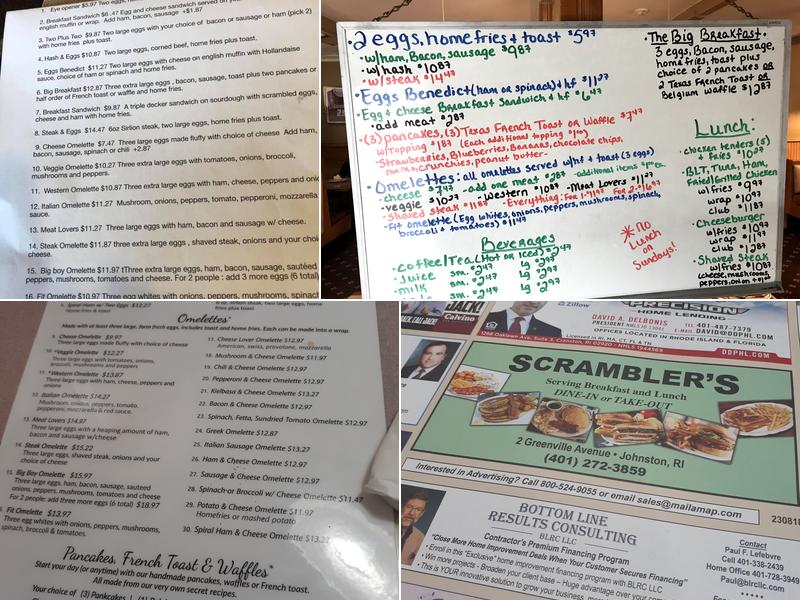 1. Eye opener $5.97 Two eggs,
2. Breakfast Sandwich $6.47 Egg and cheese sandwich served on
english muffin or wrap. Add ham, bacon, sausage +$1.87
3. Two Plus Two $9.87 Two large eggs with your choice of bacon or sausage or ham (pick 2)
with home fries plus toast.
4. Hash & Eggs $10.87 Two large eggs, corned beef, home fries plus toast.
5. Eggs Benedict $11.27 Two large eggs with cheese on english muffin with Hollandaise
sauce, choice of ham or spinach and home fries.
6. Big Breakfast $12.87 Three extra large eggs, bacon, sausage, toast plus two pancakes or
half order of French toast or waffle and home fries.
7. Breakfast Sandwich $9.87 A triple decker sandwich on sourdough with scrambled eggs,
cheese and ham with home fries.
8. Steak & Eggs $14.47 6oz Sirlion steak, two large eggs, home fries plus toast.
9. Cheese Omelette $7.47 Three large eggs made fluffy with choice of cheese Add ham,
bacon, sausage, spinach or chili +2.87
10. Veggie Omelette $10.27 Three extra large eggs with tomatoes, onions, broccoli,
mushrooms and peppers.
11. Western Omelette $10.87 Three extra large eggs with ham, cheese, peppers and
12. Italian Omelette $11.27 Mushroom, onions, peppers, tomato, pepperoni, mozzarella
sauce.
13. Meat Lovers $11.27 Three large eggs with ham, bacon and sausage w/ cheese.
14. Steak Omelette $11.87 three large eggs, shaved steak, onions and your
cheese.
15. Big boy Omelette $11.97 tThree extra large eggs, ham, bacon, sausage, sautéed
peppers, mushrooms, tomatoes and cheese. For 2 people : add 3 more eggs (6 total)
16. Fit Omelette $10.97 Three egg whites with onions, peppers, mushrooms, spinach
• 2 eggs, home fries & toast $5.97
• w/ham, Bacon, sausage $9.87
• w/hash $10.87
• w/steak $14.47
• Eggs Benedict (ham or spinach) & hf $11.27
• Egg & cheese Breakfast Sandwich & hf $6.47
• add meat $2.87
• (3) pancakes, (3) Texas French Toast or Waffle $7.47
w/Topping $1.87 (Each additional topping $1.00)
- Strawberries, Blueberries, Bananas, chocolate chips,
m&ms, crunchies, peanut butter-
• Omelettes: all omelettes served w/hf & toast (3 eggs)
- cheese $7.47 - add one meat $2.87 - additional items
- veggie $10.27 - Western $10.87 - Meat Lovers $11.27
- Shaved steak $11.87 - Everything: For 1-$11.97 For 2-$16.97
- Fit omelette (Egg whites, onions, peppers, mushrooms, spinach,
broccoli & tomatoes) $11.47
Beverages
• coffee/Tea (Hot or iced) $2.47
• Juice sm. $2.47 lg $2.97
• milk sm. $2.47 lg $2.97
sm. $2.47 lg $2.97
• The Big Breakfast •
3 eggs, Bacon, sausage,
home fries, toast plus
choice of 2 pancakes OR
2 Texas French Toast OR
Belgium waffle $12.87
Lunch:
• chicken tenders (5)
& fries $10.27
• BLT, Tuna, Ham,
Fried/Grilled Chicken
w/fries $9.97
wrap $10.97
club $11.87
• Cheeseburger
w/fries $10.97
wrap $11.97
club $12.87
• Shaved Steak
w/fries $10.87
cheese, mushrooms,
peppers, onion
*no
Lunch
on
Sundays!
1. Spiral Ham w/ Two Eggs $12.27
Home fries & toast
fries plus toast
Omelettes*
Made with at least three large, farm fresh eggs, includes toast and home fries. Each can be made into a wrap.
9. Cheese Omelette $9.97
Three large eggs made fluffy with choice of cheese
10. Veggie Omelette $12.27
Three extra large eggs with tomatoes, onions,
broccoli, mushrooms and peppers
11. *Western Omelette $13.87
Three large eggs with ham, cheese, peppers and
onions
12. Italian Omelette $14.27
Mushroom, onions, peppers, tomato,
pepperoni, mozzarella & red sauce.
13. Meat Lovers $14.97
Three large eggs with a heaping amount of ham,
bacon and sausage w/cheese
14. Steak Omelette $15.22
Three large eggs, shaved steak, onions and your
choice of cheese
15. Big Boy Omelette $15.97
Three large eggs, ham, bacon, sausage, sauteed
onions, peppers, mushrooms, tomatoes and cheese
For 2 people: add three more eggs (6 total) $18.97
Fit Omelette $13.97
Three egg whites with onions, peppers, mushrooms,
spinach, broccoli & tomatoes.
17. Cheese Lover Omelette $12.97
American, swiss, provolone, mozzarella
18. Mushroom & Cheese Omelette $11.97
19. Chili & Cheese Omelette $12.97
20. Pepperoni & Cheese Omelette $12.97
21. Kielbasa & Cheese Omelette $13.27
22. Bacon & Cheese Omelette $12.97
23. Spinach, Fetta, Sundried Tomato Omelette $12.97
24. Greek Omelette $12.87
25. Italian Sausage Omelette $13.27
26. Ham & Cheese Omelette $12.97
27. Sausage & Cheese Omelette $12.97
28. Spinach or Broccoli w/ Cheese Omelette $11.47
29. Potato & Cheese Omelette $11.97
Homefries or mashed potato
30. Spiral Ham & Cheese Omelette $13.27
Pancakes, French Toast & Waffles*
Start your day (or anytime) with our handmade pancakes, waffles or French toast.
All made from our very own secret recipes.
Your choice of (3) Pankcakes
CALL BACK!
Calvino
Zillow
PRECISION
HOME LENDING
DAVID A. DELBONIS
PRESIDENT NMLS ID 13041
TEL 401-487-7379
E-MAIL DAVID@DDPHL.COM
OFFICES LOCATED IN RHODE ISLAND & FLORIDA
1268 Oaklawn Ave. Suite 3, Cranston, RI 02920 - NMLS 1944569
Licensed in RI, MA, CT, FL & TN
DDPHL.COM
SCRAMBLER'S
Serving Breakfast and Lunch
DINE-IN or TAKE-OUT
2 Greenville Avenue • Johnston, RI
(401) 272-3859
Interested in Advertising? Call 800-524-9055 or email sales@mallamap.com
23081
BOTTOM LINE
RESULTS CONSULTING
BLRC LLC
Contractor's Premium Financing Program
"Close More Home Improvement Deals When Your Customer Secures Financing"
• Enroll in this "Exclusive" home improvement financing program with BLRC LLC
• Win more projects - Broaden your client base - Huge advantage over your
• This is YOUR innovative solution to grow your business,
Contact
Paul F. Lefebvre
Cell 401-338-2439
Home Office 401-728-3949
Paul@blrcllc.com